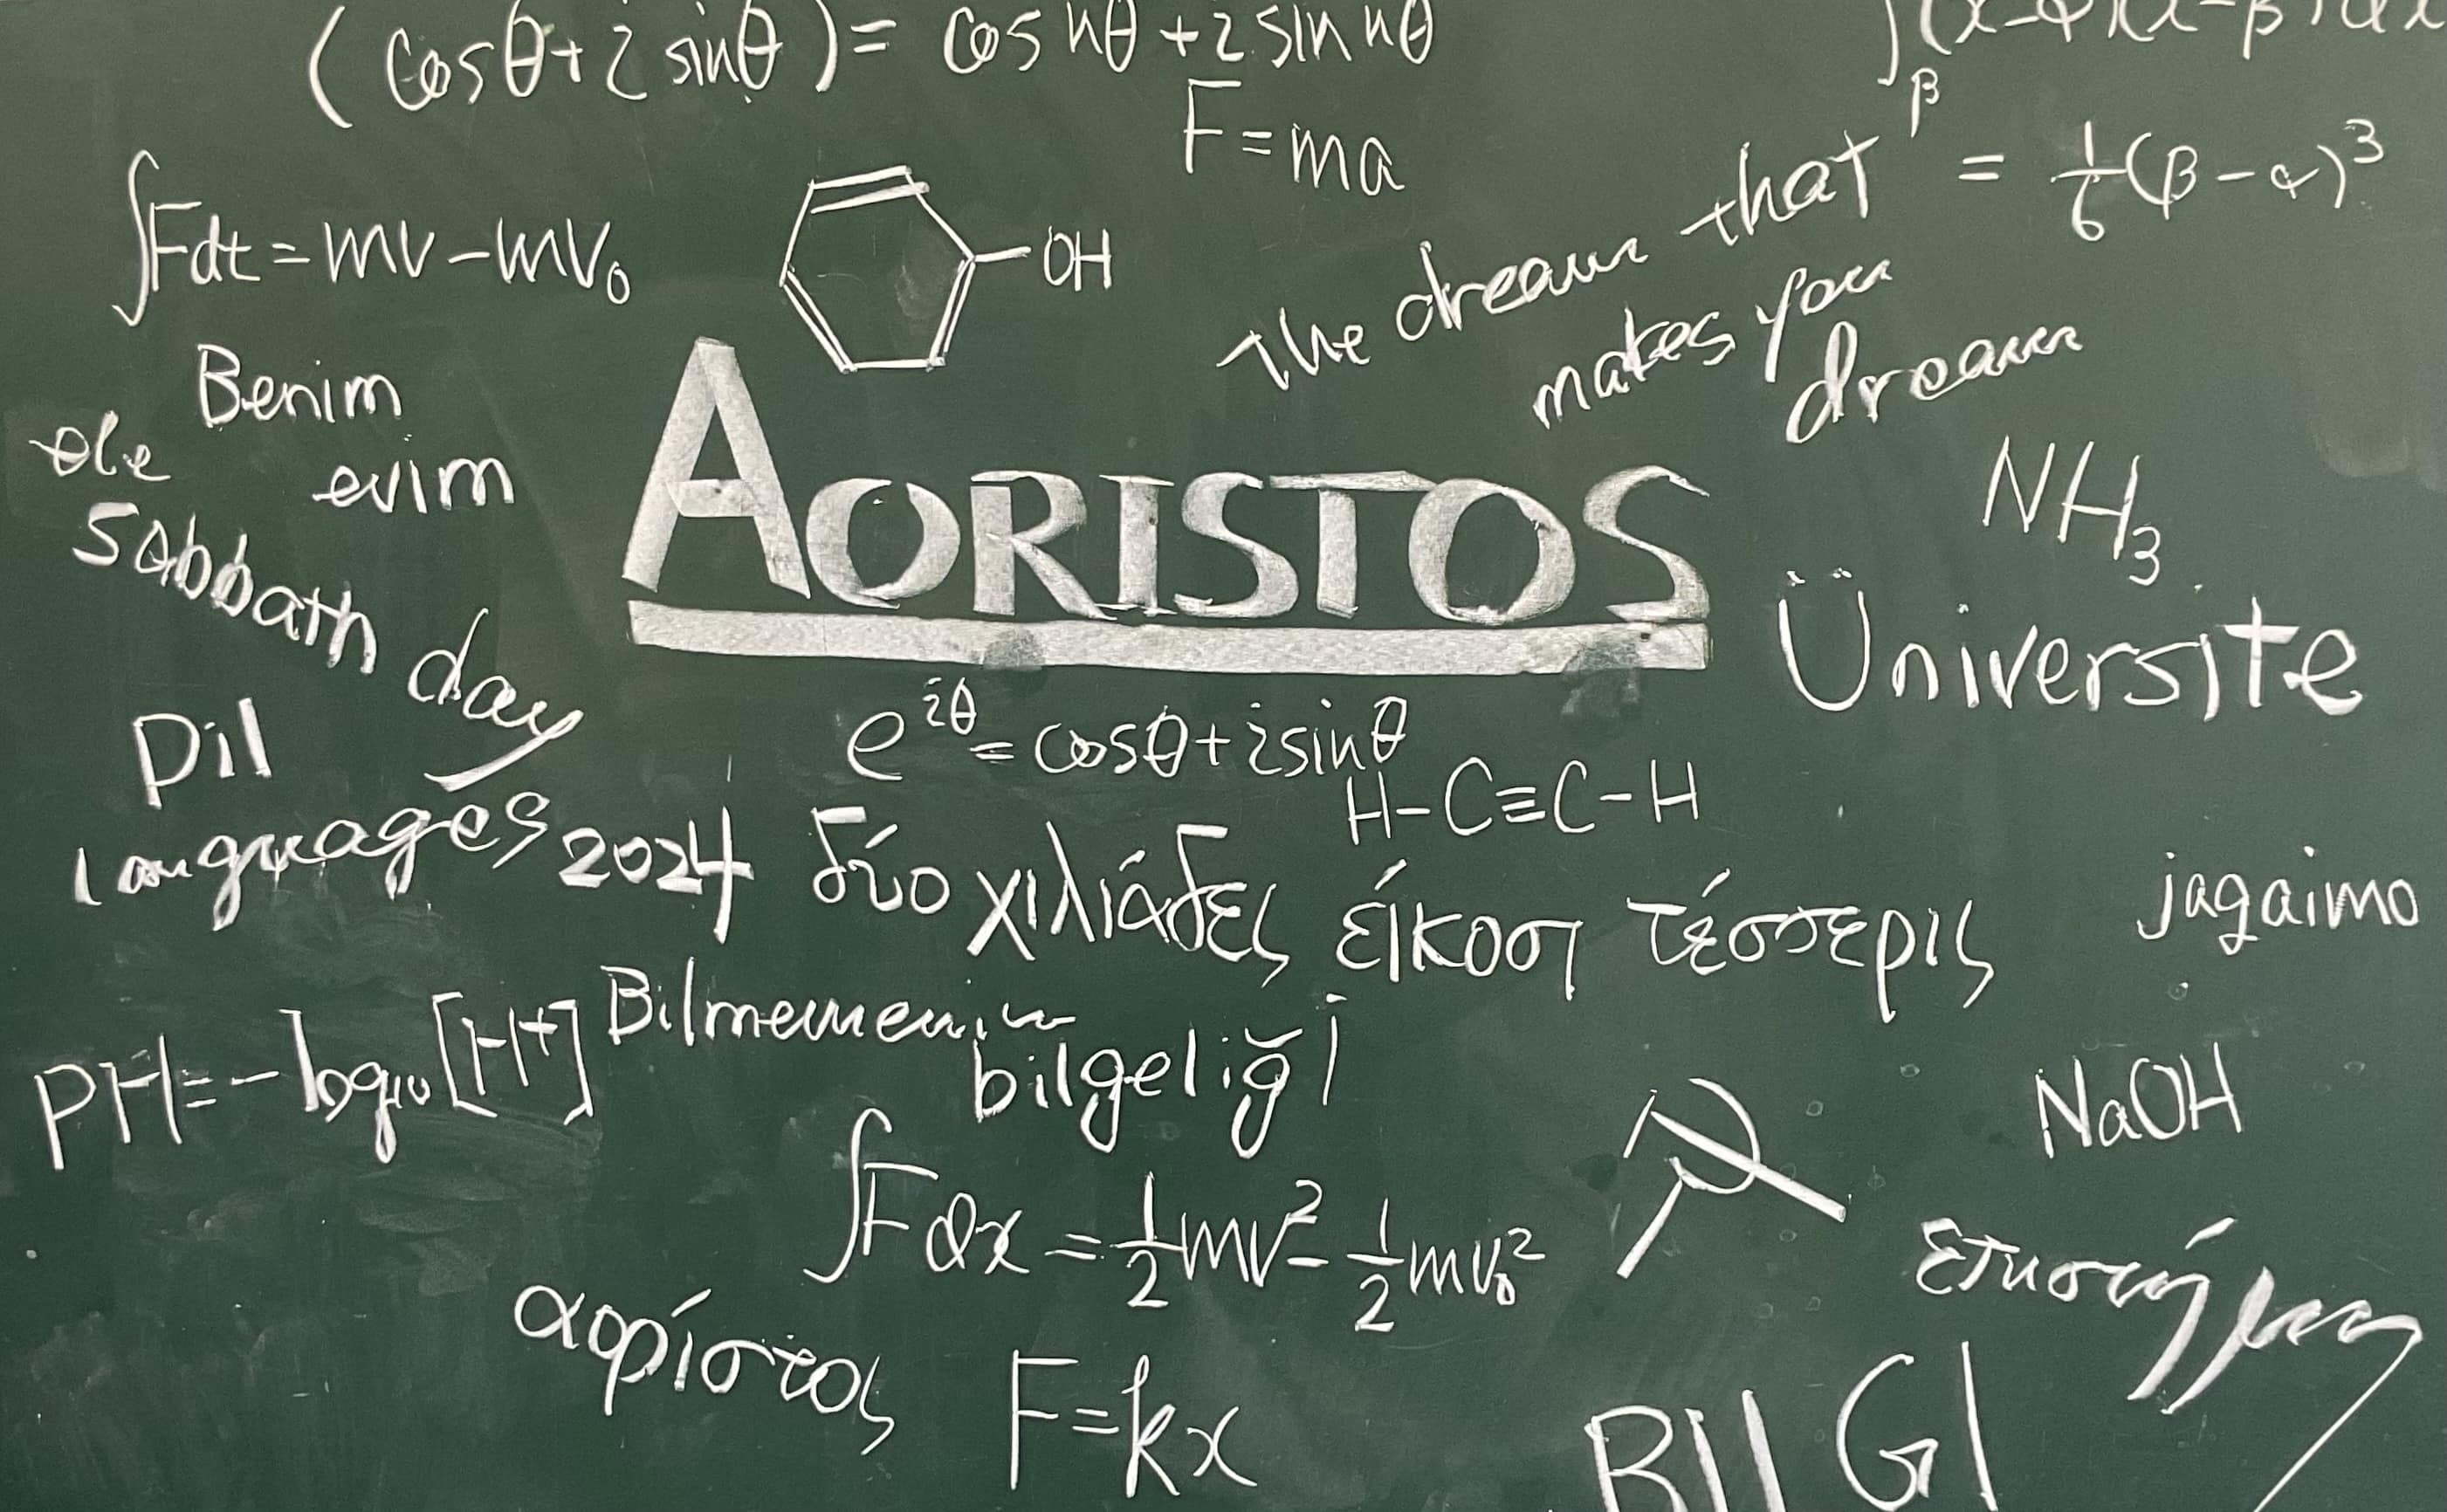 (cosθ+i sinθ)= cos nθ+i sin nθ
F=ma
∫Fdt=mv-mv₀
OH
∫(x-α)(x-β)dx
β
= 1/6(β-α)³
The dream that
makes you
dream
Benim
evim
Sabbath day
AORISTOS
NH₃
Üniversite
Dil
e^{iθ}=cosθ+i sinθ
H-C≡C-H
languages
2024 δύο χιλιάδες είκοσι τέσσερις
jagaimo
PH=-log₁₀[H⁺]
Bilmemenin
bilgeliği
NaOH
∫Fdx=1/2mv²-1/2mv₀²
επιστήμη
αορίστος
F=kx
BILGI